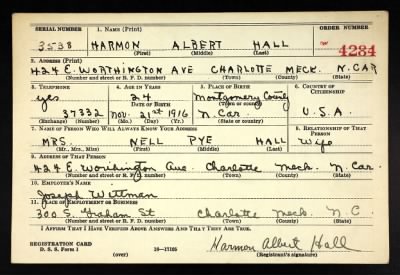 SERIAL NUMBER 1. NAME (Print) ORDER NUMBER
3538 HARMON ALBERT HALL 4284
(First) (Middle) (Last)
2. ADDRESS (Print)
424 E. WORTHINGTON AVE CHARLOTTE MECK. N.CAR
(Number and street or R. F. D. number) (Town) (County) (State)
3. TELEPHONE 4. AGE IN YEARS 5. PLACE OF BIRTH 6. COUNTRY OF CITIZENSHIP
yes 24 Montgomery County
DATE OF BIRTH (Town or county)
37332 Nov. 21st 1916 N. Car. U.S.A.
(Exchange) (Number) (Mo.) (Day) (Yr.) (State or country)
7. NAME OF PERSON WHO WILL ALWAYS KNOW YOUR ADDRESS 8. RELATIONSHIP OF THAT PERSON
MRS. NELL PYE HALL Wife
(Mr., Mrs., Miss) (First) (Middle) (Last)
9. ADDRESS OF THAT PERSON
424 E. Worthington Ave Charlotte Meck. N. Car.
(Number and street or R. F. D. number) (Town) (County) (State)
10. EMPLOYER'S NAME
Joseph Wittman
11. PLACE OF EMPLOYMENT OR BUSINESS
300 S. Graham St Charlotte Meck. N C.
(Number and street or R. F. D. number) (Town) (County) (State)
I AFFIRM THAT I HAVE VERIFIED ABOVE ANSWERS AND THAT THEY ARE TRUE.
REGISTRATION CARD
D. S. S. Form 1 16-17105 Harmon Albert Hall
(over) (Registrant's signature)